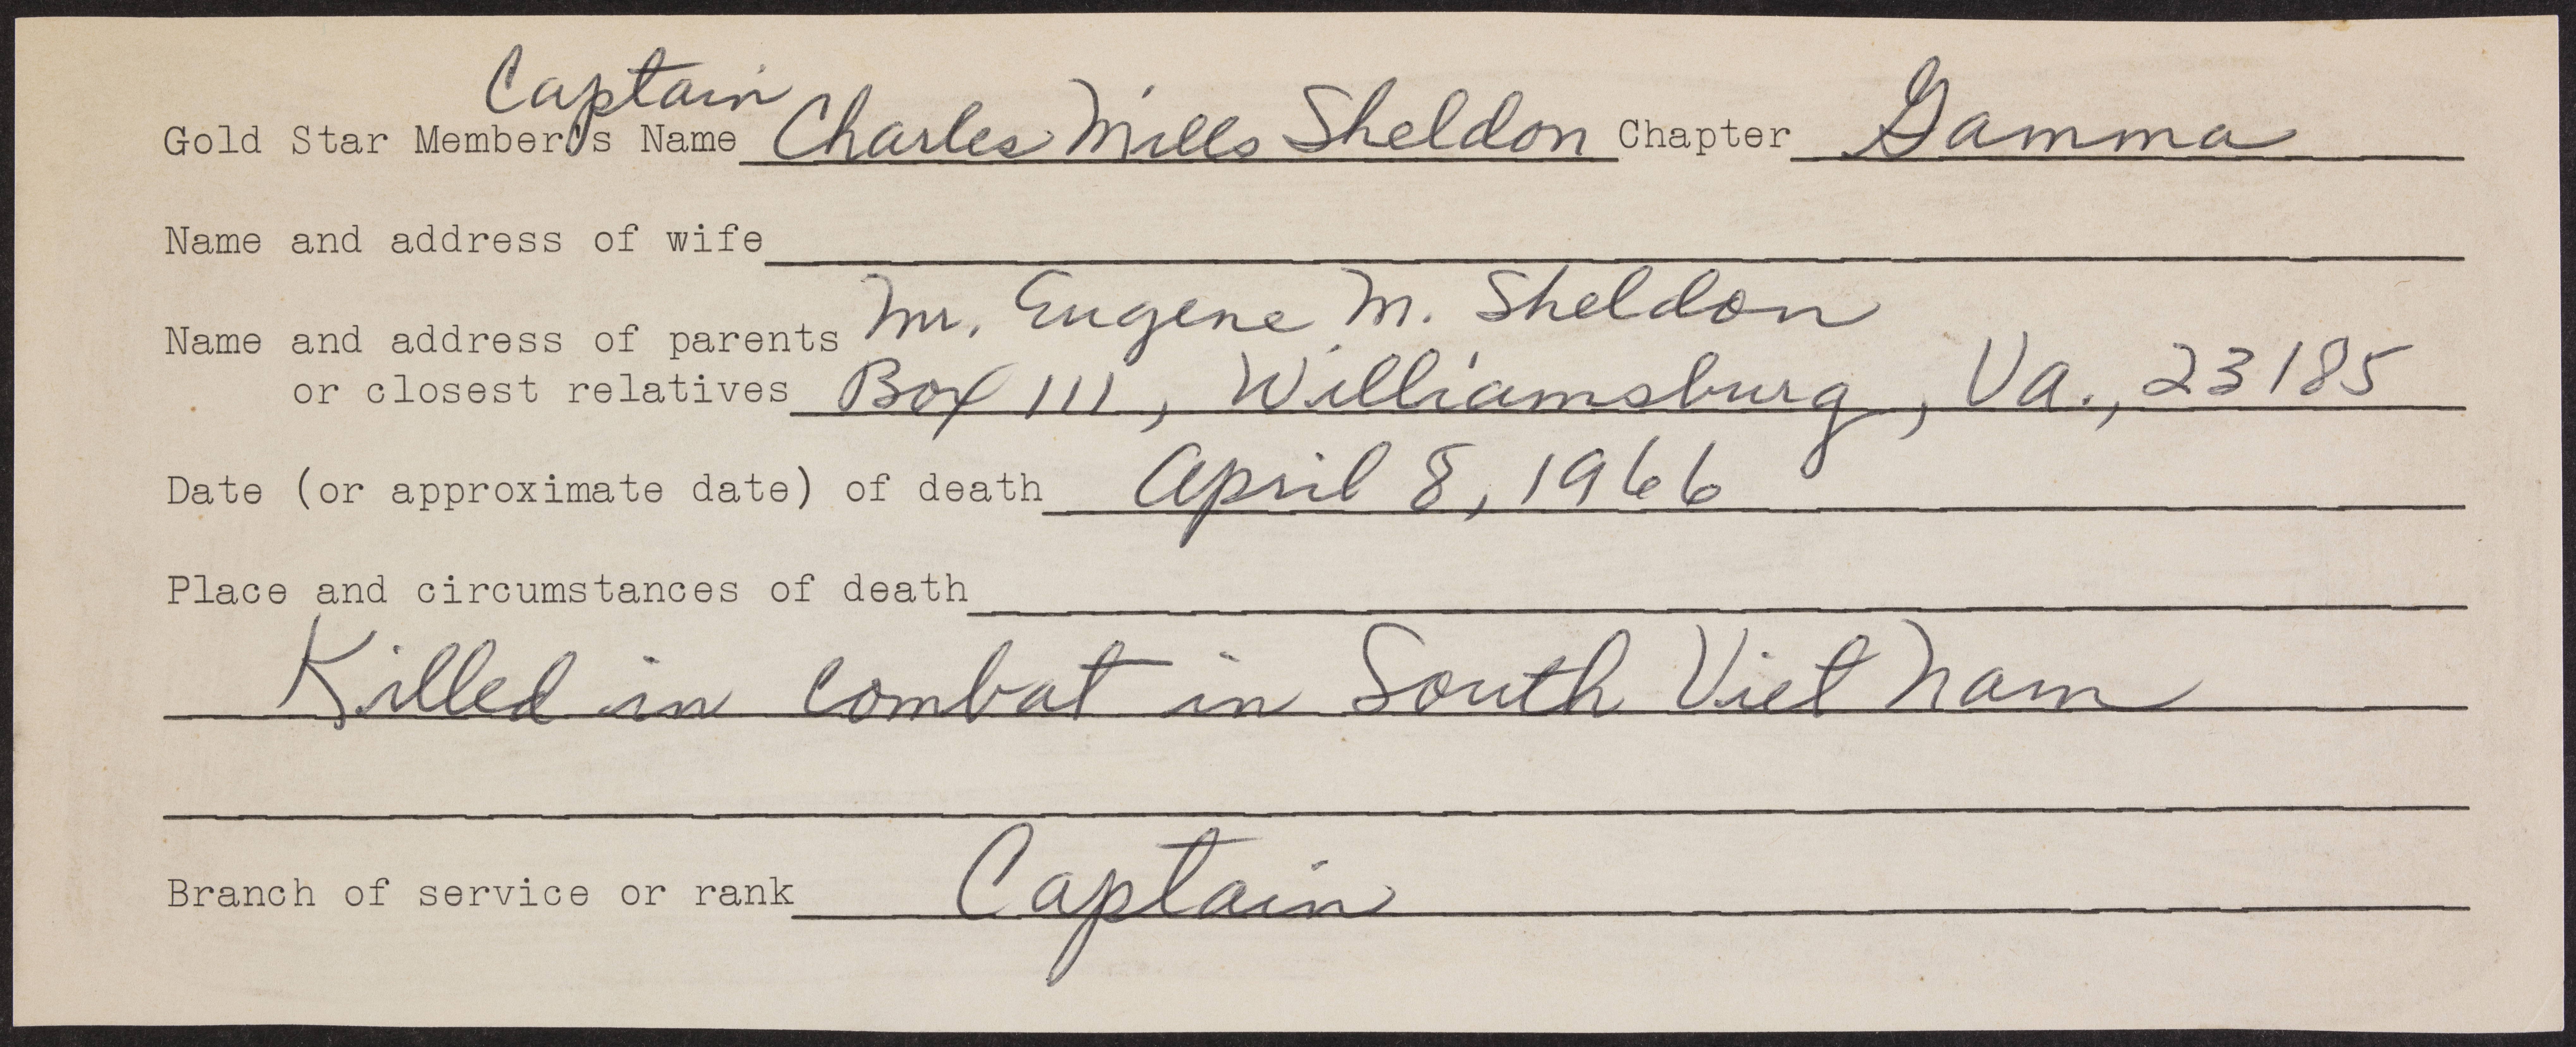 Captain
Gold Star Member's Name Charles Mills Sheldon Chapter Gamma
Name and address of wife
Mr. Eugene M. Sheldon
Name and address of parents
or closest relatives Box 111, Williamsburg, Va., 23185
Date (or approximate date) of death April 8, 1966
Place and circumstances of death
Killed in combat in South Viet Nam
Branch of service or rank Captain